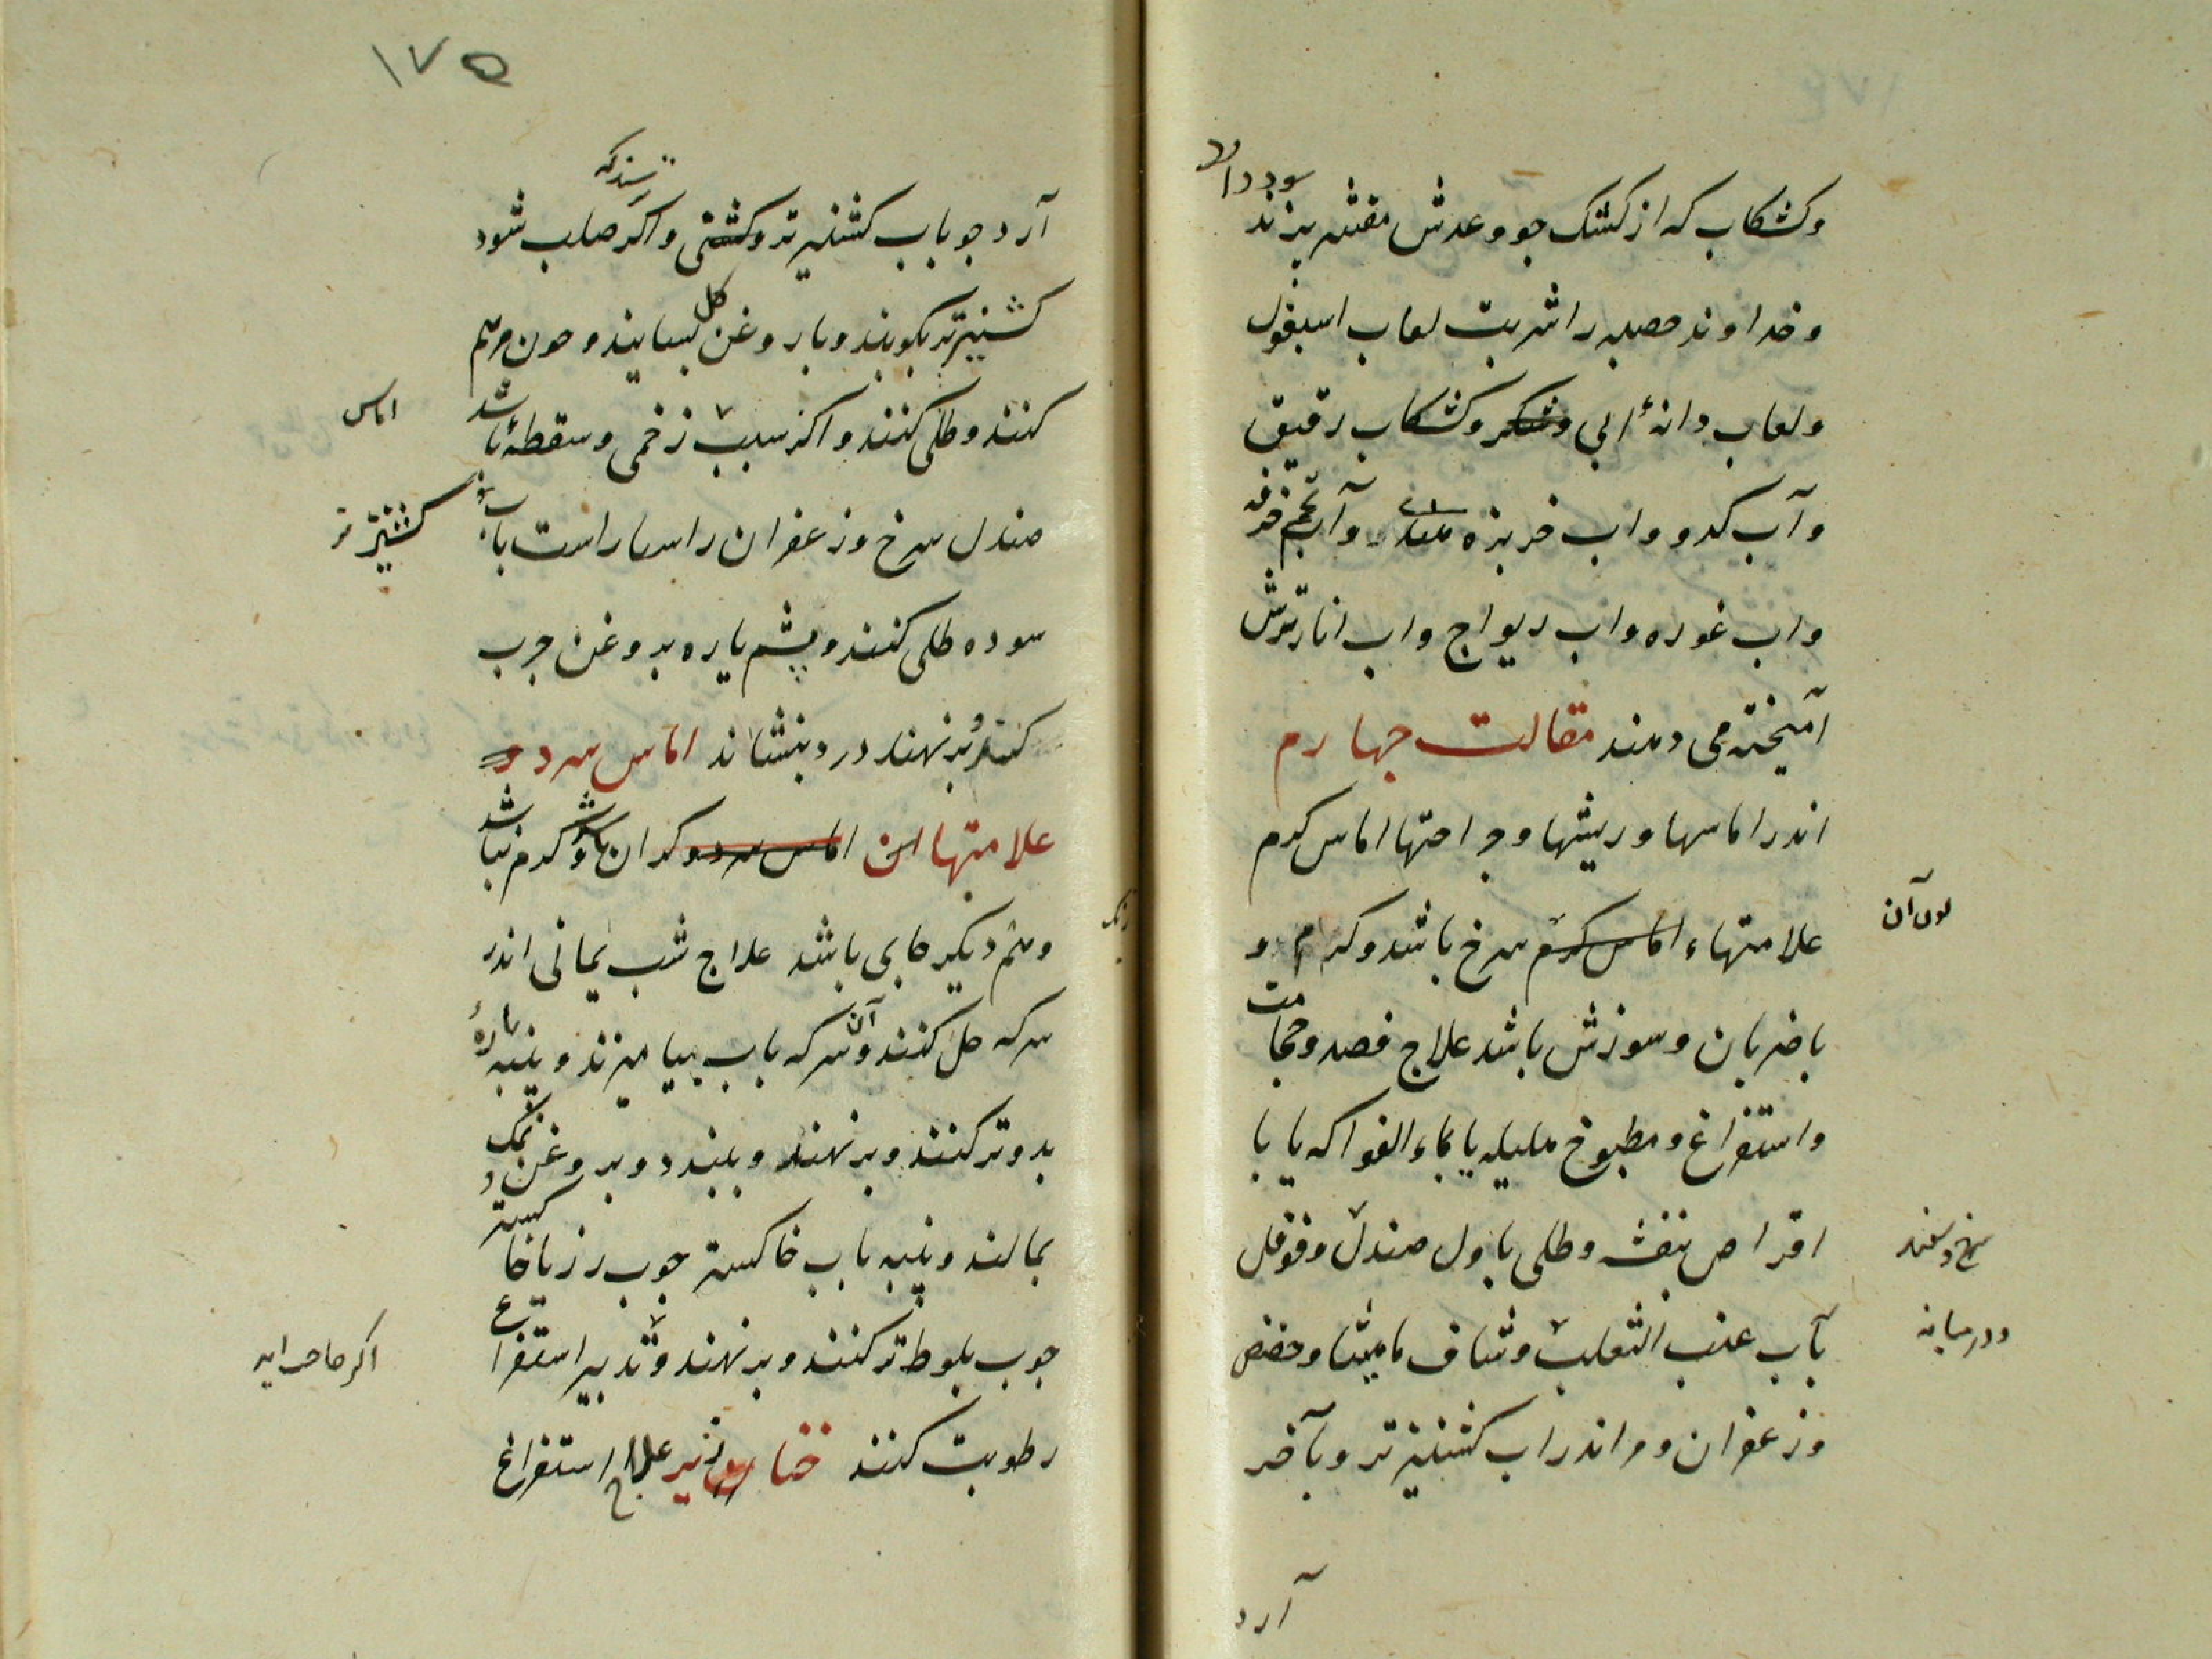 وکشکاب که از کشک جو و عدس مقشر پزند سود دارد
و خداوند حصبه را شربت لعاب اسبغول
و لعاب دانهٔ آبی و شکر و کشکاب رقیق
و آب کدو و اب خربزه هندی و آب تخم خرفه
و اب غوره و اب ریواج و اب انار ترش
آمیخته می دهند مقالت چهارم
اندر اماسها و ریشها و جراحتها اماس گرم
علامتهاء اماس گرم سرخ باشد و گرم و
لون آن
با ضربان و سوزش باشد علاج فصد و حجامت
و استفراغ و مطبوخ هلیله یا بماء الفواکه یا با
اقراص بنفشه و طلی باول صندل و فوفل
سرخ و سفید
بآب عنب الثعلب و شیاف مامیثا و حضض
و در میانه
و زعفران و مر اندر اب کشنیز تر و بآخر
آرد
۱۷۵
آرد جو باب کشنیز تر و کشتی و اگر صلب شود
ترسند که
کشنیز تر بکوبند و با روغن گل بسایند و چون مرهم
کنند و طلی کنند و اگر سبب زخمی و سقطهٔ باشد
اماس
صندل سرخ و زعفران راستا راست باب
کشنیز تر
سوده طلی کنند و پشم پاره بروغن چرب
کنند و بر نهند درد بنشاند اماس سرد و
علامتها این اماس سرد و گران باشد و گرم نباشد
و هم دیگر جای باشد علاج شب یمانی اندر
رنگ
سرکه حل کنند و آن سرکه باب بیامیزند و پنبه پارهٔ
بدو تر کنند و بر نهند و ببندد و بروغن و نمک
بمالند و پنبه باب خاکستر چوب رز یا خاکستر
چوب بلوط تر کنند و بر نهند و تدبیر استفراغ
اگر حاجت اید
رطوبت کنند خنازیر علاج استفراغ